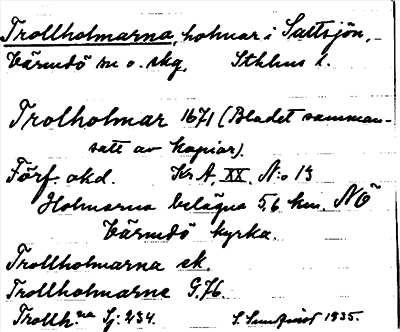 Trollholmarna, holmar i Saltsjön,
Värmdö sn o. skg, Sthlms l.
Trolholmar 1671 (Bladet samman-
satt av kopior).
Förf okd. Kr. A. XX. N:o 13
Holmarna belägna 5,6 km. NÖ
Värmdö kyrka.
Trollholmarna ek.
Trollholmarne G. 76.
Trollh.na Sj: 234. S. Sundqvist 1935.